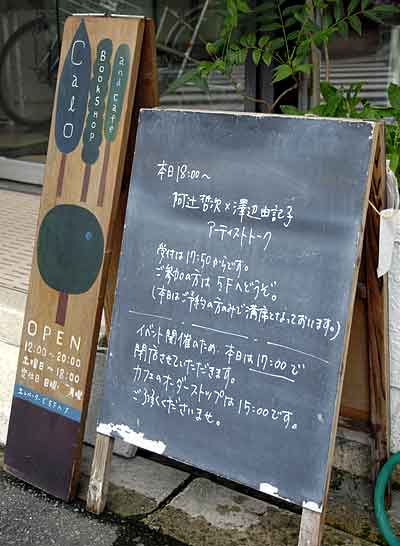 Calo
BOOKSHOP
and cafe
OPEN
12:00~20:00
土曜日~18:00
定休日 日曜、月曜
エレベーターで5Fへ↑
本日18:00~
阿辻哲次×澤辺由記子
アーティストトーク
受付は17:50からです。
ご参加の方は5Fへどうぞ。
(本日はご予約の方のみで満席となっております。)
イベント開催のため、本日は17:00で
閉店させていただきます。
カフェのオーダーストップは15:00です。
ご了承くださいませ。